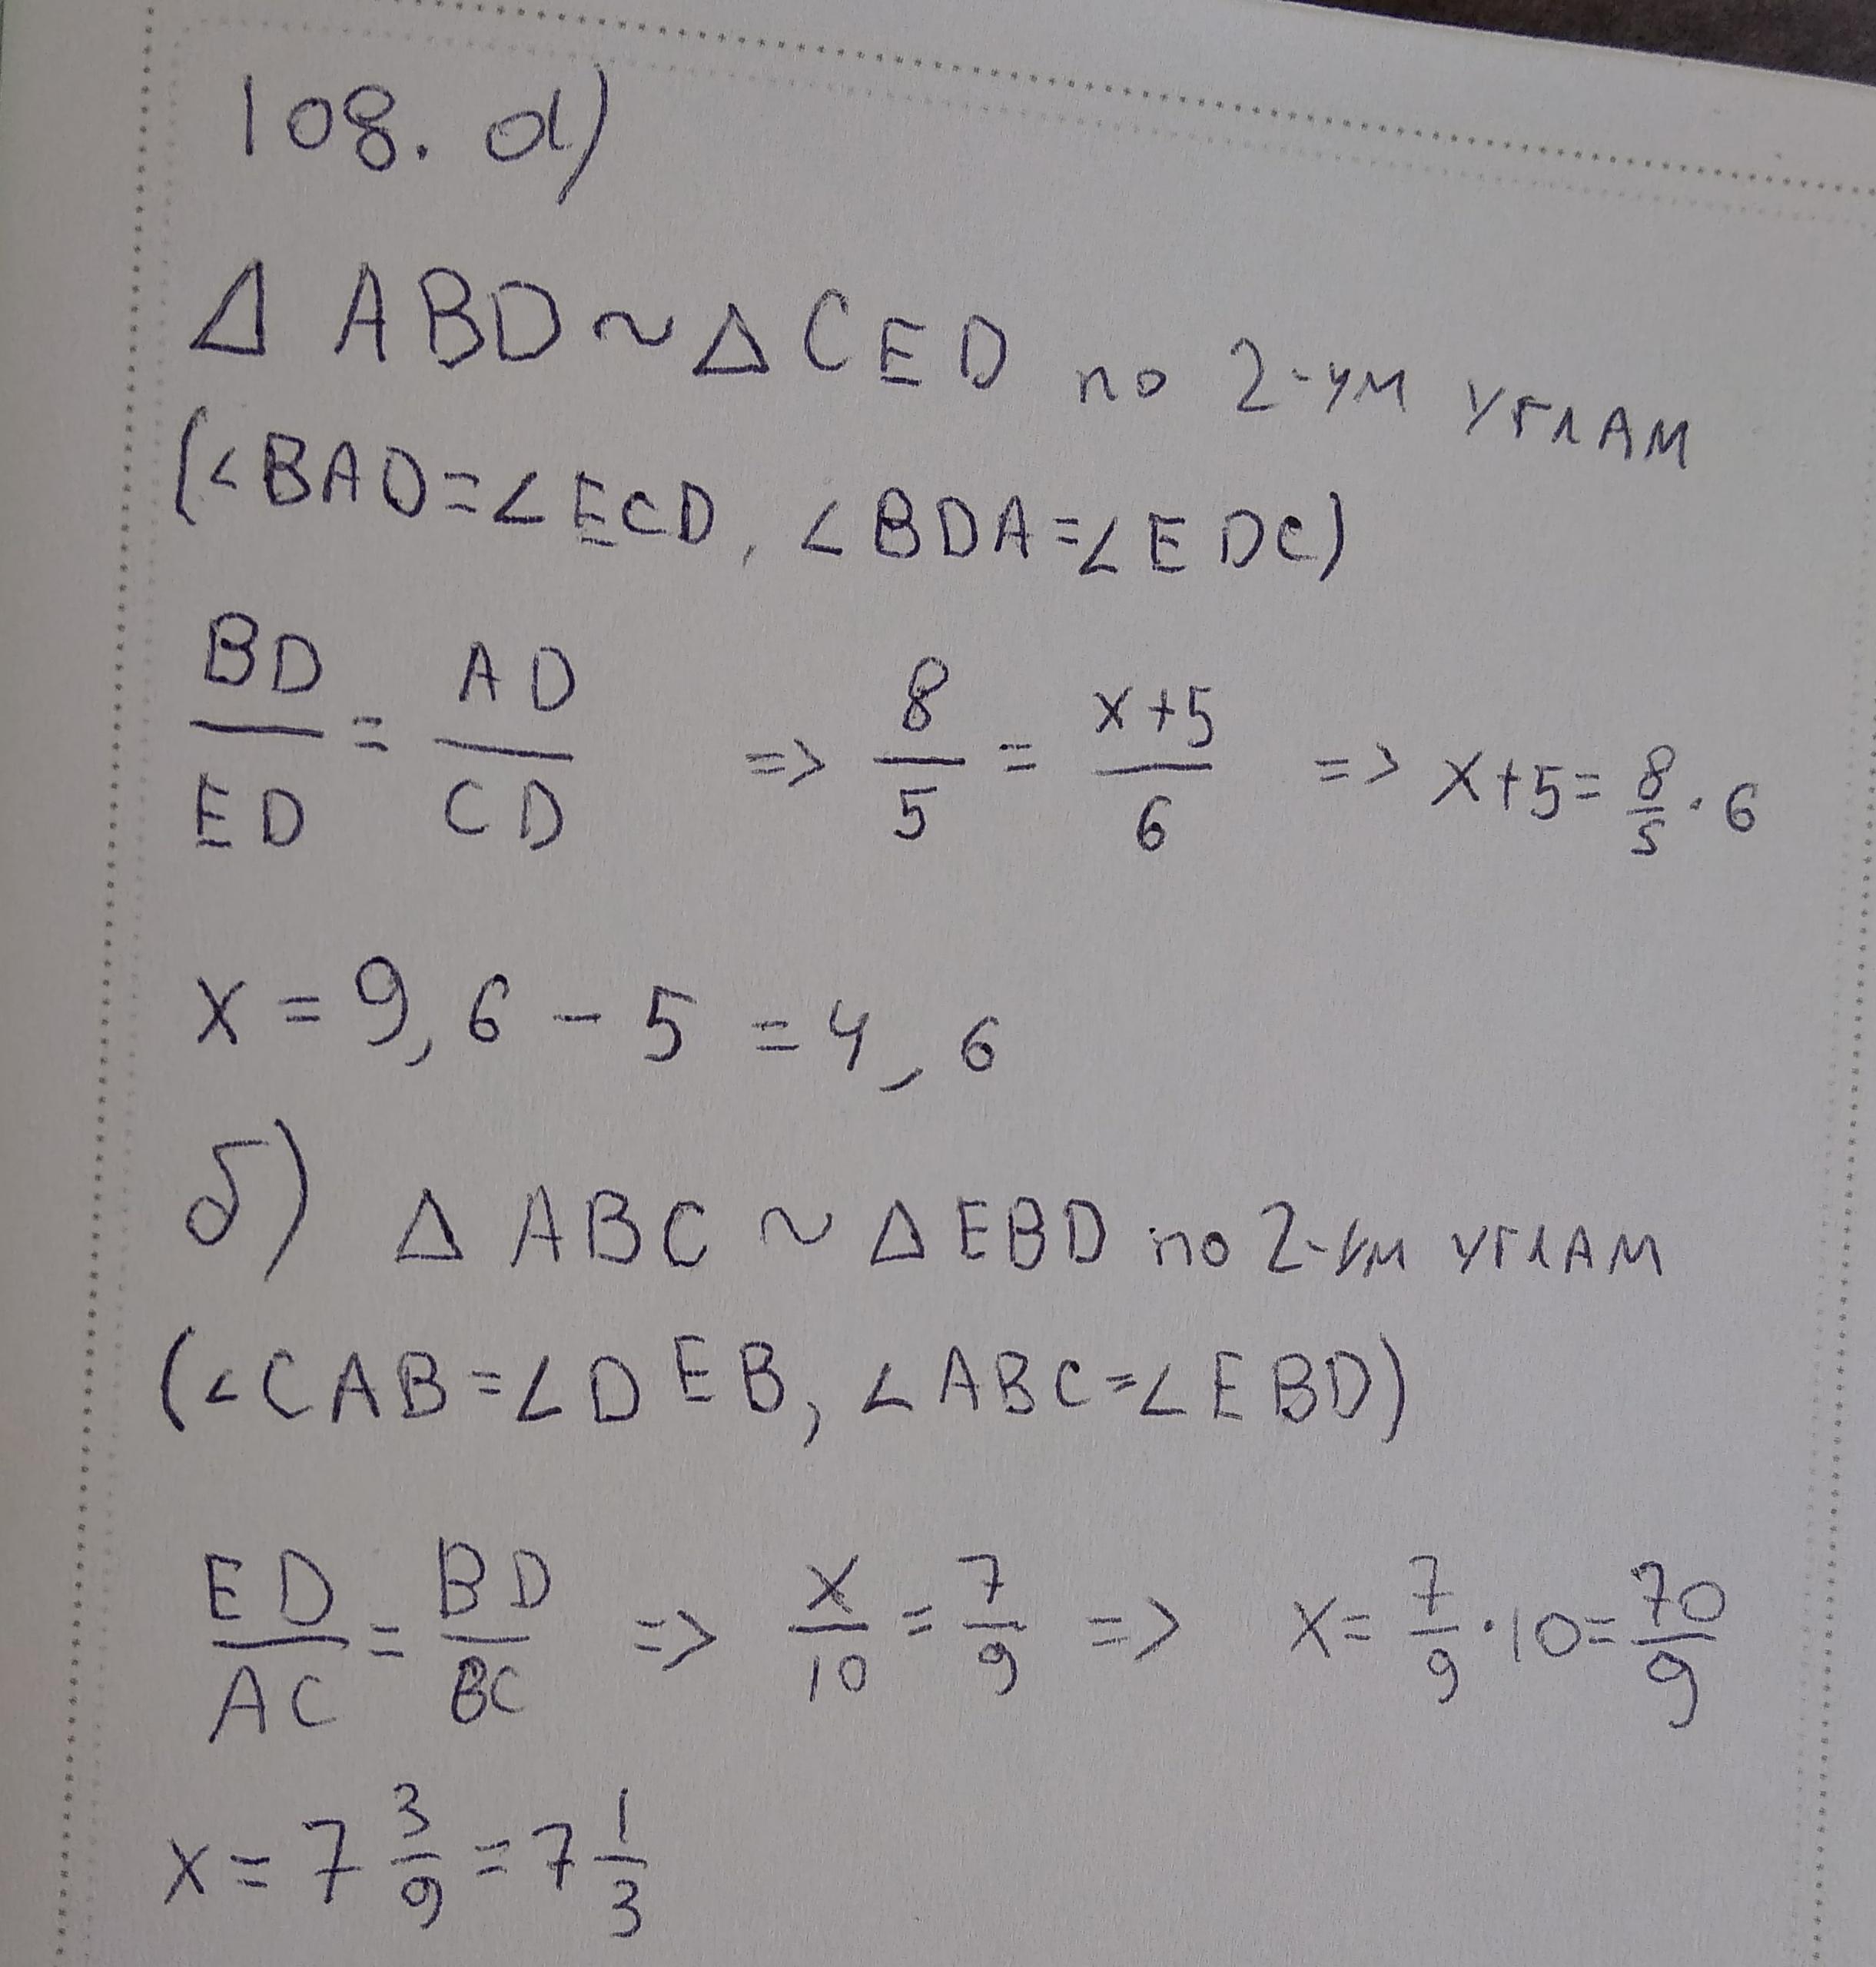 108. а)
Δ ABD ~ Δ CED по 2-ум углам
(∠BAD=∠ECD, ∠BDA=∠EDC)
BD/ED = AD/CD => 8/5 = x+5/6 => x+5=8/5·6
x = 9,6 - 5 = 4,6
б) Δ ABC ~ Δ EBD по 2-ум углам
(∠CAB=∠DEB, ∠ABC=∠EBD)
ED/AC = BD/BC => x/10 = 7/9 => x= 7/9·10=70/9
x= 7 3/9 = 7 1/3